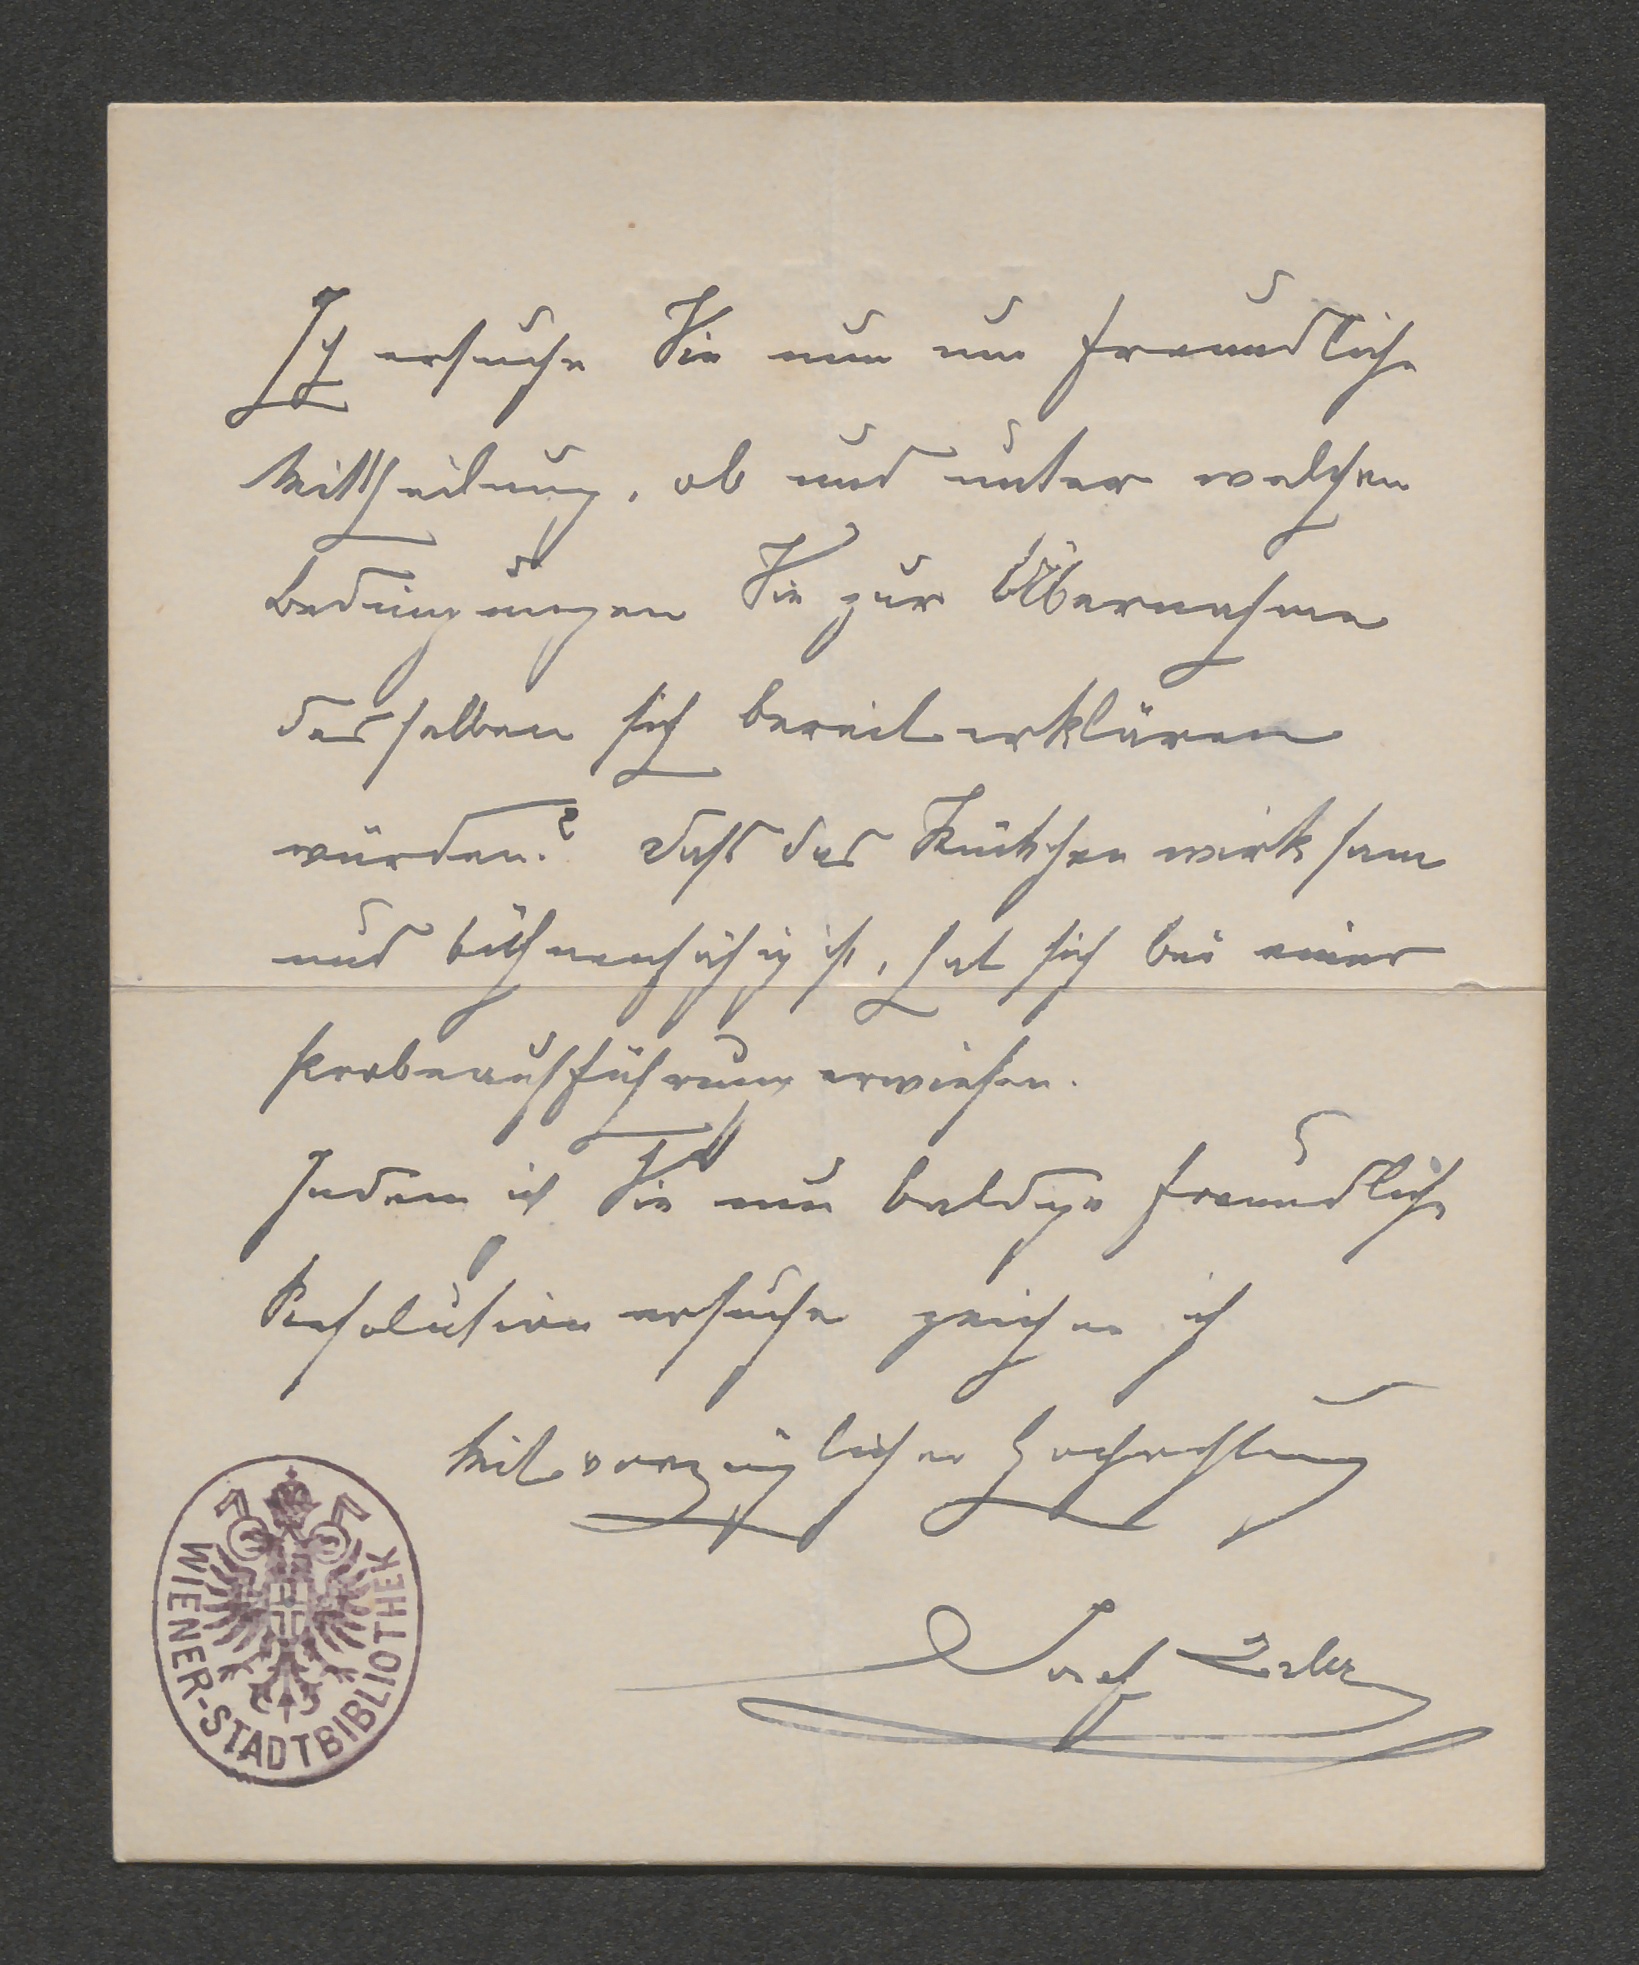 Ich ersuche Sie nun um freundliche
Mittheilung, ob und unter welchen
Bedingungen Sie zur Übernahme
desselben sich bereit erklären
würden? Daß das Stückchen wirksam
und bühnenfähig ist, hat sich bei einer
Probeaufführung erwiesen.
Indem ich Sie um baldige freundliche
Resolution ersuche zeichne ich
Mit vorzüglicher Hochachtung
Josef
WIENER-STADTBIBLIOTHEK